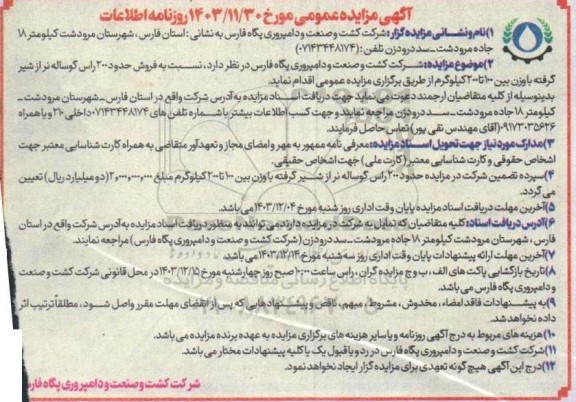 آگهی مزایده عمومی مورخ ۱۴۰۳/۱۱/۳۰ روزنامه اطلاعات
۱)نام و نشانی مزایده گزار: شرکت کشت و صنعت و دامپروری پگاه فارس به نشانی: استان فارس، شهرستان مرودشت کیلومتر ۱۸
جاده مرودشت ـ سد درودزن تلفن: (۰۷۱۴۳۴۴۸۱۷۴)
۲)موضوع مزایده: شرکت کشت و صنعت و دامپروری پگاه فارس در نظر دارد، نسبت به فروش حدود ۲۰۰ راس گوساله نر از شیر
گرفته با وزن بین ۱۰۰ تا ۲۰۰ کیلوگرم از طریق برگزاری مزایده عمومی اقدام نماید.
بدینوسیله از کلیه متقاضیان ارجمند دعوت می نماید جهت دریافت اسناد مزایده به آدرس شرکت واقع در استان فارس ـ شهرستان مرودشت ـ
کیلومتر ۱۸ جاده مرودشت ـ سد درودزن مراجعه نمایند و جهت کسب اطلاعات بیشتر با شماره تلفن های ۰۷۱۴۳۴۴۸۱۷۴ داخلی ۲۱۰ و یا همراه
۰۹۱۷۳۰۳۵۶۲۶ (آقای مهندس تقی پور) تماس حاصل فرمایند.
۳)مدارک مورد نیاز جهت تحویل اسناد مزایده: معرفی نامه ممهور به مهر و امضای مجاز و تعهدآور متقاضی به همراه کارت شناسایی معتبر جهت
اشخاص حقوقی و کارت شناسایی معتبر (کارت ملی) جهت اشخاص حقیقی.
۴)سپرده تضمین شرکت در مزایده حدود ۲۰۰ راس گوساله نر از شیر گرفته با وزن بین ۱۰۰ تا ۲۰۰ کیلوگرم مبلغ ۲،۰۰۰،۰۰۰،۰۰۰ (دو میلیارد ریال) تعیین
می گردد.
۵)آخرین مهلت دریافت اسناد مزایده پایان وقت اداری روز شنبه مورخ ۱۴۰۳/۱۲/۰۴ می باشد.
۶)آدرس دریافت اسناد: کلیه متقاضیان که تمایل به شرکت در مزایده دارند می توانند به منظور دریافت اسناد مزایده به آدرس شرکت واقع در استان
فارس، شهرستان مرودشت کیلومتر ۱۸ جاده مرودشت ـ سد درودزن (شرکت کشت و صنعت و دامپروری پگاه فارس) مراجعه نمایند.
۷)آخرین مهلت ارائه پیشنهادات پایان وقت اداری روز سه شنبه مورخ ۱۴۰۳/۱۲/۱۴ می باشد.
۸)تاریخ بازگشایی پاکت های الف، ب و ج مزایده گران، راس ساعت ۱۰:۰۰ صبح روز چهارشنبه مورخ ۱۴۰۳/۱۲/۱۵ در محل قانونی شرکت کشت و صنعت
و دامپروری پگاه فارس می باشد.
۹)به پیشنهادات فاقد امضاء، مخدوش، مشروط، مبهم، ناقص و پیشنهادهایی که پس از انقضای مهلت مقرر واصل شود، مطلقا ترتیب اثر
داده نخواهد شد.
۱۰)هزینه های مربوط به درج آگهی روزنامه و یا سایر هزینه های برگزاری مزایده به عهده برنده مزایده می باشد.
۱۱)شرکت کشت و صنعت و دامپروری پگاه فارس در رد و یا قبول یک یا کلیه پیشنهادات مختار می باشد.
۱۲)درج این آگهی هیچ گونه تعهدی برای مزایده گزار ایجاد نخواهد نمود.
شرکت کشت و صنعت و دامپروری پگاه فارس